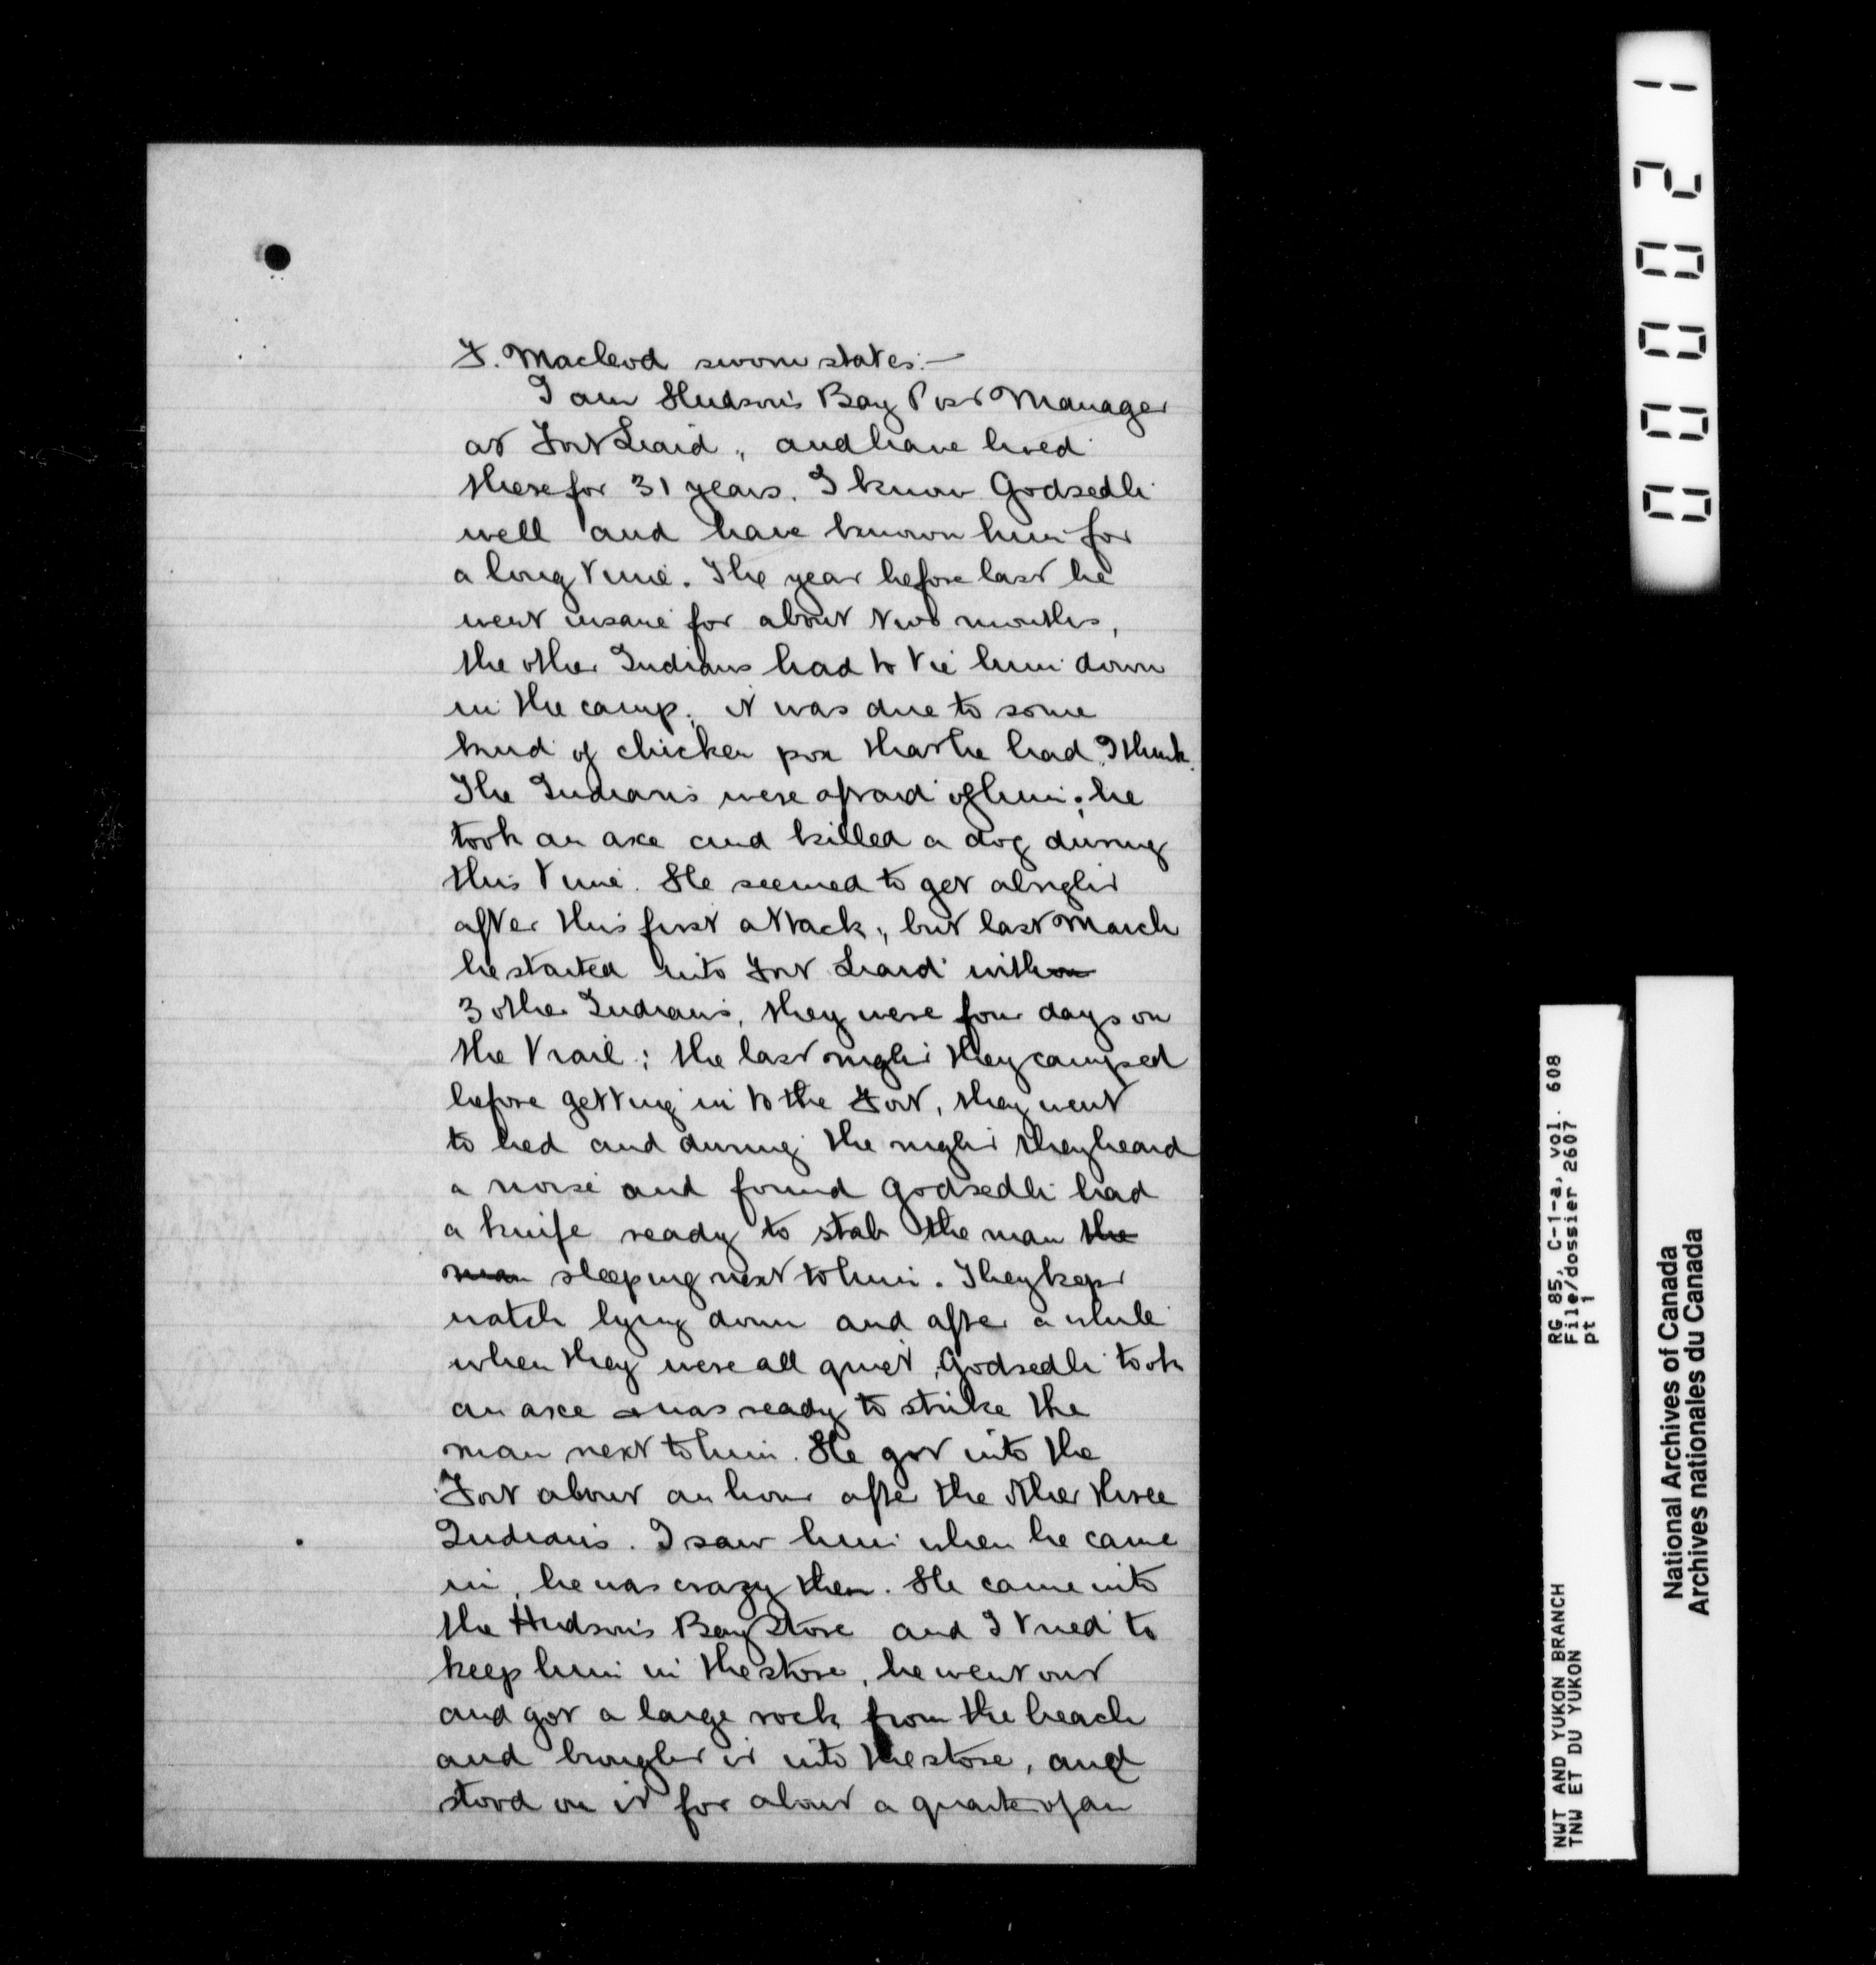 F. Macleod sworn states:—
I am Hudson's Bay Post Manager
at Fort Liard, and have lived
there for 31 years. I know Godsedli
well and have known him for
a long time. The year before last he
went insane for about two months,
the other Indians had to tie him down
in the camp; it was due to some
kind of chicken pox that he had I think.
The Indians were afraid of him; he
took an axe and killed a dog during
this time. He seemed to get alright
after this first attack, but last March
he started into Fort Liard with
3 other Indians, they were four days on
the trail; the last night they camped
before getting in to the Fort, they went
to bed and during the night they heard
a noise and found Godsedli had
a knife ready to stab the man the
man sleeping next to him. They kept
watch lying down and after a while
when they were all quiet, Godsedli took
an axe & was ready to strike the
man next to him. He got into the
Fort about an hour after the other three
Indians. I saw him when he came
in, he was crazy then. He came into
the Hudson's Bay Store and I tried to
keep him in the store, he went out
and got a large rock from the beach
and brought it into the store, and
stood on it for about a quarter of an
000021
RG 85, C-1-a, vol. 608
File/dossier 2607
pt 1
NWT AND YUKON BRANCH
TNW ET DU YUKON
National Archives of Canada
Archives nationales du Canada